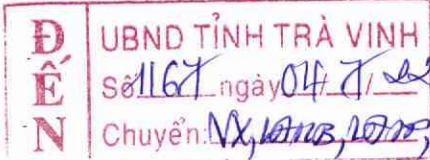 ĐẾN
UBND TỈNH TRÀ VINH
Số 1167 ngày 04/7/22
Chuyển: VX,